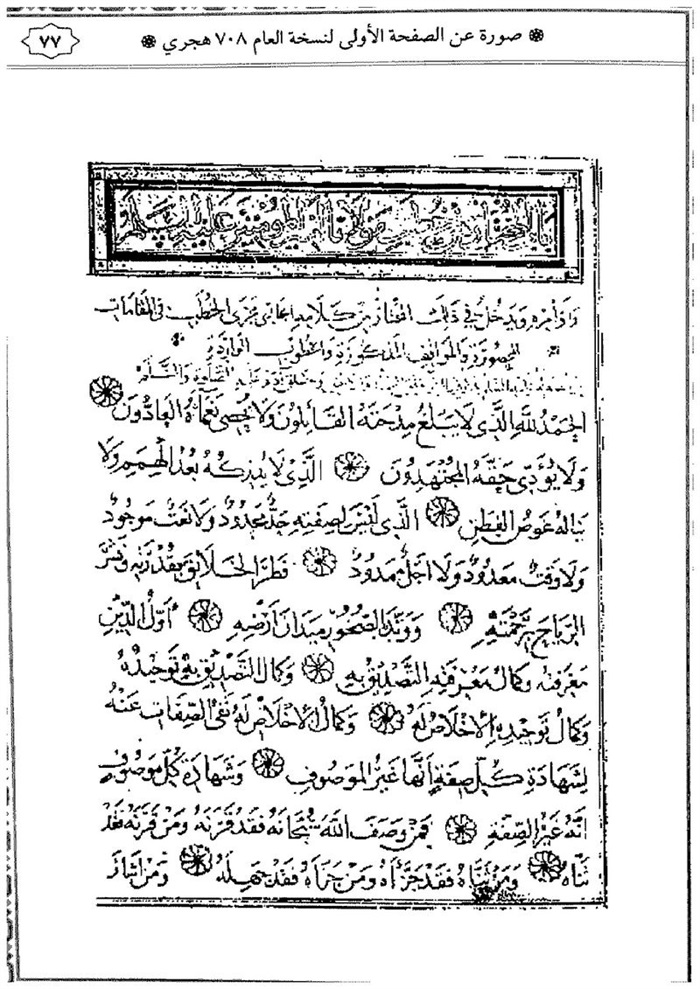 صورة عن الصفحة الأولى لنسخة العام ٧٠٨ هجري
٧٧
باب المختار من خطب مولانا أمير المؤمنين عليه السلم
واوامره ويدخل في ذلك المختار من كلامه الجاري مجرى الخطب في المقامات
المحصورة والمواقف المذكورة والخطوب الواردة
الحمد لله الذي لا يبلغ مدحته القائلون ولا يحصى نعماه العادون
ولا يؤدي حقه المجتهدون الذي لا يدركه بعد الهمم ولا
يناله غوص الفطن الذي ليس لصفته حد محدود ولا نعت موجود
ولا وقت معدود ولا اجل ممدود فطر الخلائق بقدرته ونشر
الرياح برحمته ووتد الصخور ميدان أرضه أول الدين
معرفته وكمال معرفته التصديق به وكمال التصديق به توحيده
وكمال توحيده الاخلاص له وكمال الاخلاص له نفي الصفات عنه
لشهادة كل صفة أنها غير الموصوف وشهادة كل موصوف
انه غير الصفة فمن وصف الله سبحانه فقد قرنه ومن قرنه فقد
ثناه ومن ثناه فقد جزأه ومن جزاه فقد جهله ومن اشار